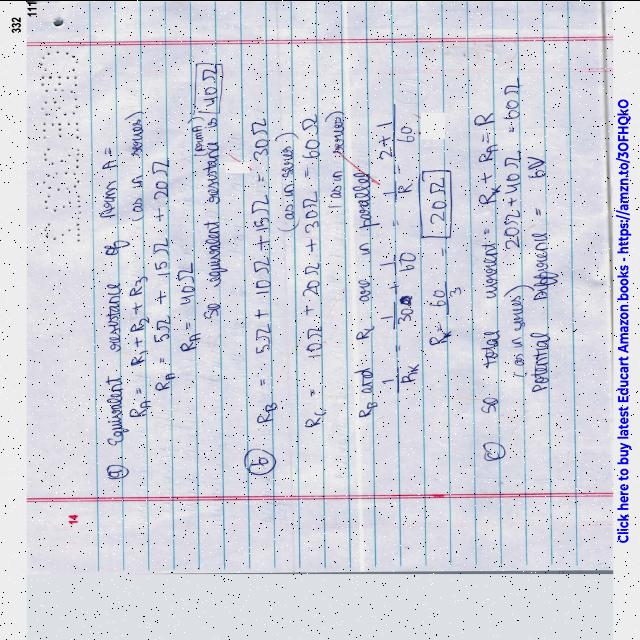 332
111
14
(a) Equivalent resistance of from A =
RA = R1 + R2 + R3 (as in series)
RA = 5Ω + 15Ω + 20Ω
RA = 40Ω
So equivalent resistance (from A) is 40Ω
(b) RB = 5Ω + 10Ω + 15Ω = 30Ω
(as in series)
RC = 10Ω + 20Ω + 30Ω = 60Ω
(as in series)
RB and RC are in parallel
1/RK = 1/30 + 1/60 = 1/R = 2+1/60
RK = 60/3 = 20Ω
(c) So total current = RK + RA = R
(as in series) 20Ω + 40Ω = 60Ω
Potential Difference = 6V
Click here to buy latest Educart Amazon books - https://amzn.to/3OFHQkO